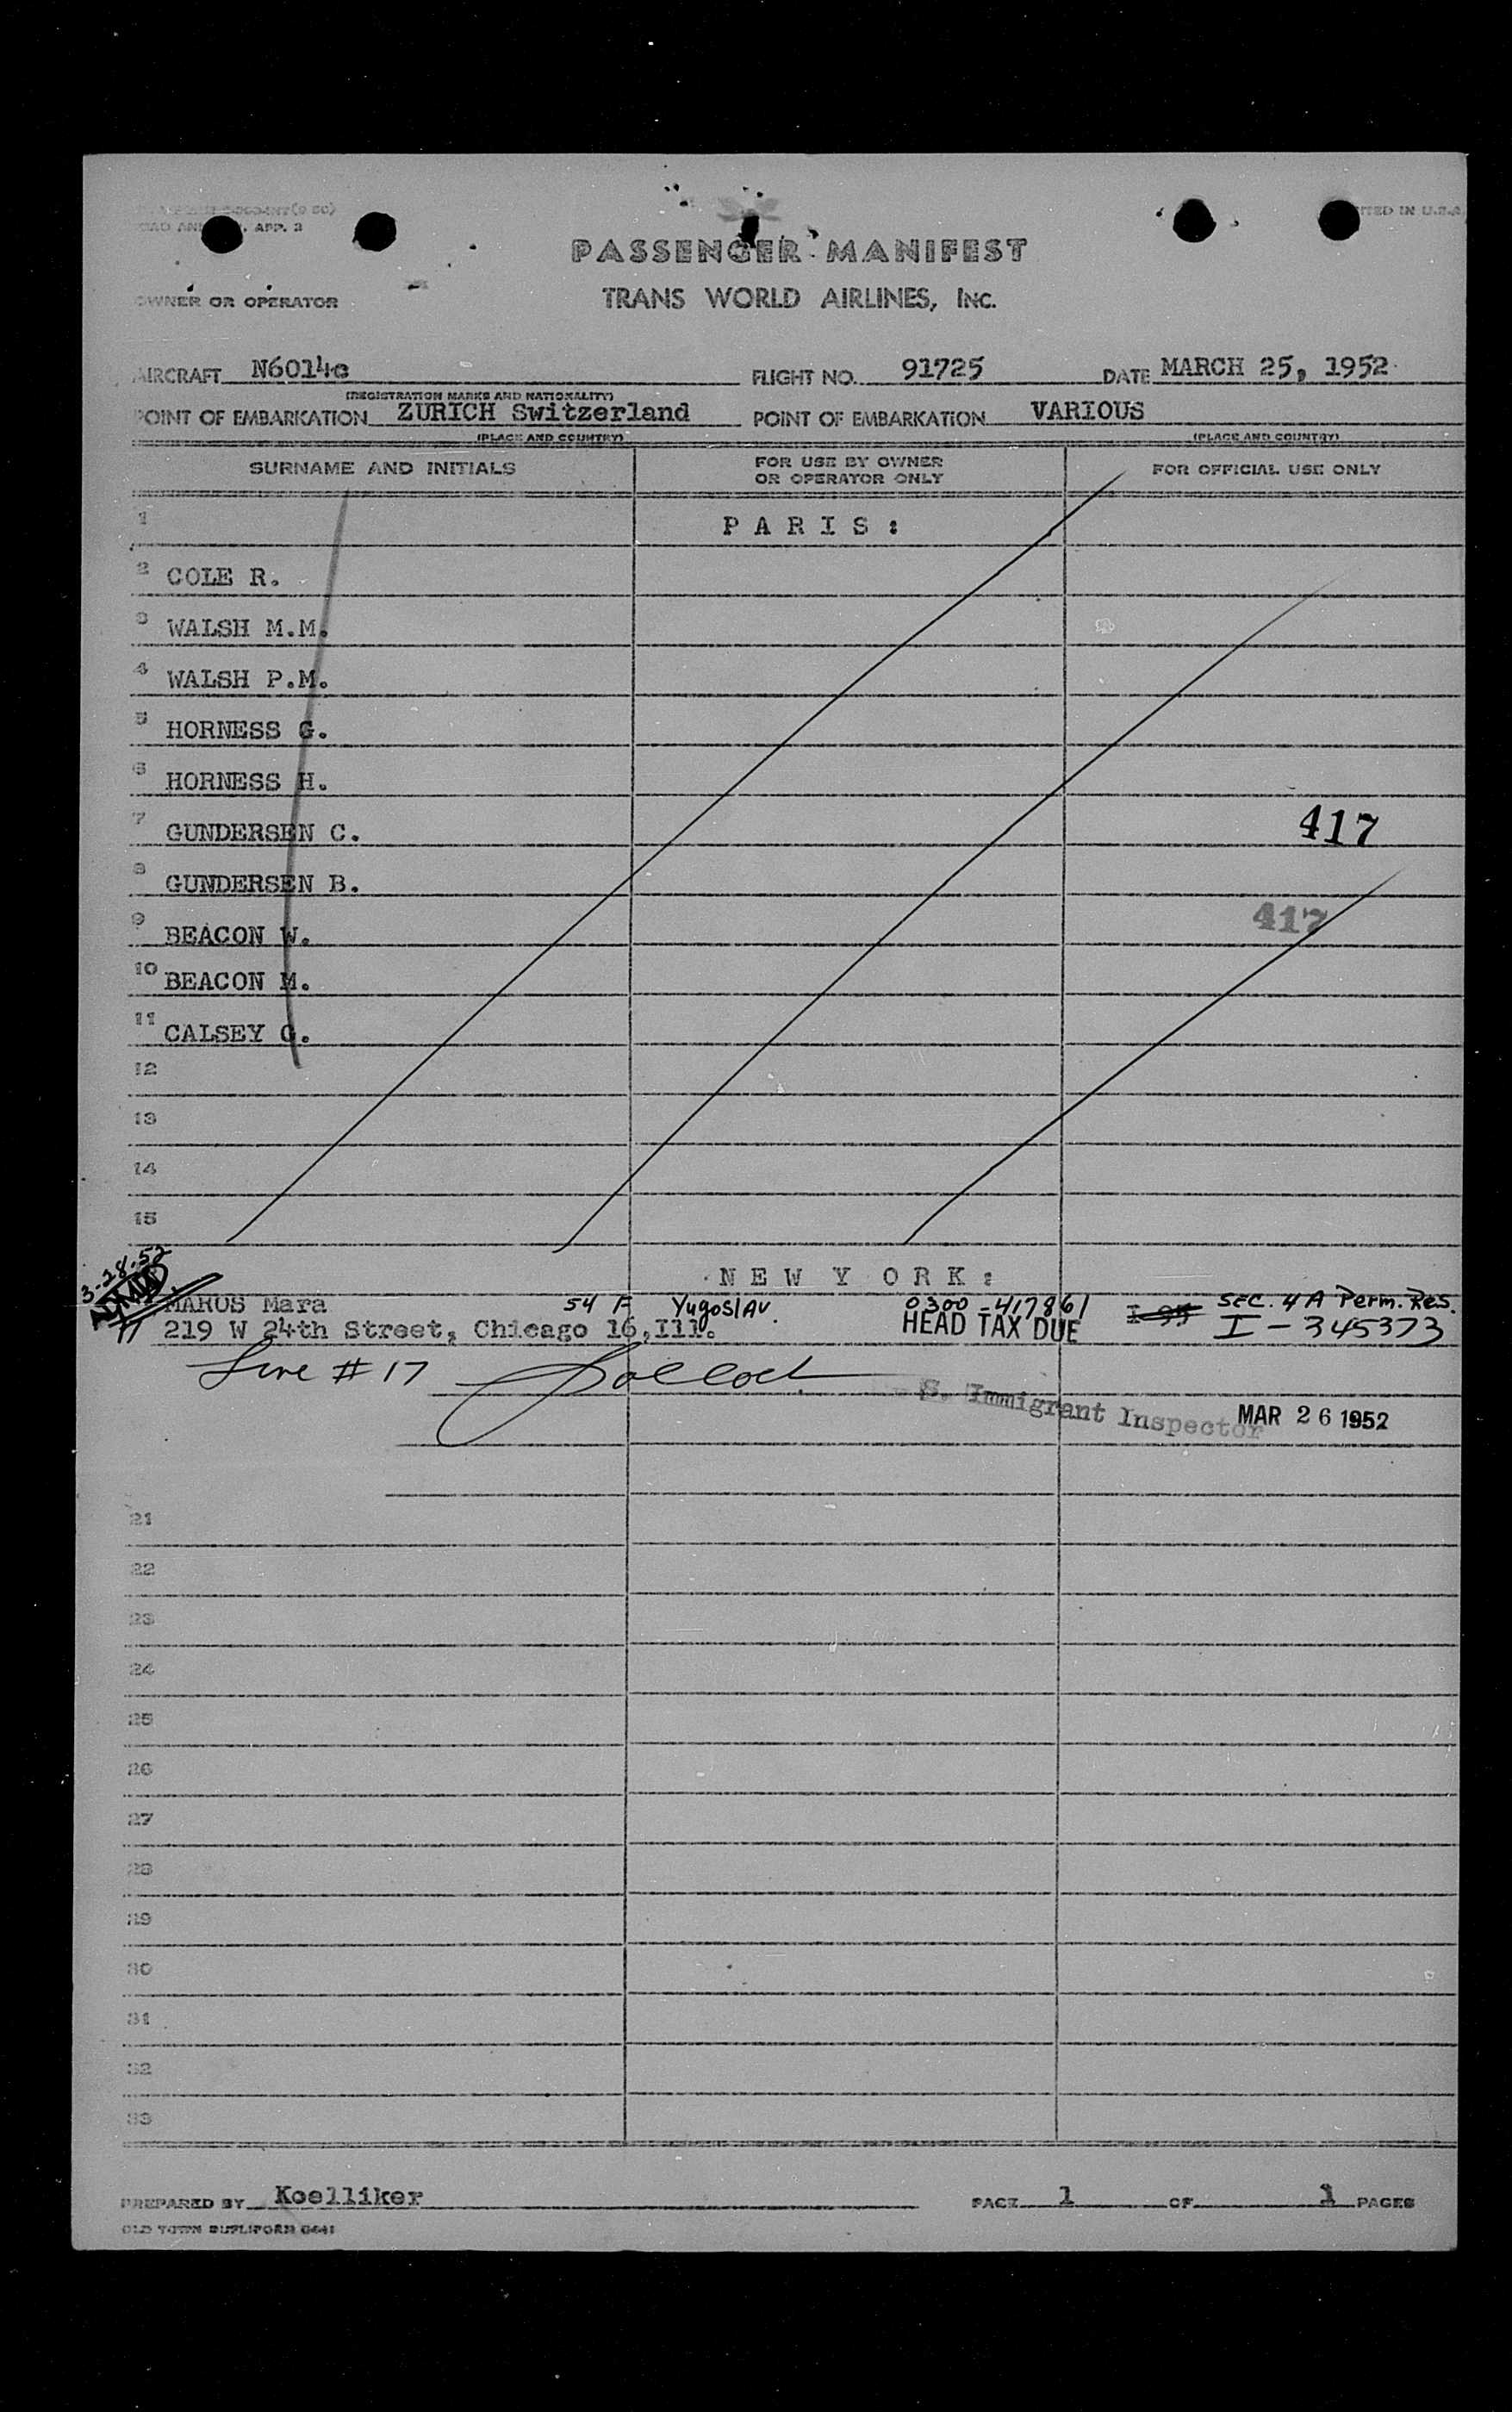 APP. 2
IN U.S.A.
PASSENGER MANIFEST
OWNER OR OPERATOR
TRANS WORLD AIRLINES, INC.
AIRCRAFT N6014c FLIGHT NO. 91725 DATE MARCH 25, 1952
(REGISTRATION MARKS AND NATIONALITY)
POINT OF EMBARKATION ZURICH Switzerland POINT OF EMBARKATION VARIOUS
(PLACE AND COUNTRY) (PLACE AND COUNTRY)
SURNAME AND INITIALS FOR USE BY OWNER OR OPERATOR ONLY FOR OFFICIAL USE ONLY
1 P A R I S :
2 COLE R.
3 WALSH M.M.
4 WALSH P.M.
5 HORNESS G.
6 HORNESS H.
7 GUNDERSEN C. 417
8 GUNDERSEN B.
9 BEACON W. 417
10 BEACON M.
11 CALSEY G.
12
13
14
15
3-28-52
N E W Y O R K :
MAROS Mara 54 F Yugoslav. 0300-417861 SEC. 4A Perm. Res.
219 W 24th Street, Chicago 16, Ill. HEAD TAX DUE I-345373
Line # 17
S. Immigrant Inspector MAR 26 1952
21
22
23
24
25
26
27
28
29
30
31
32
33
PREPARED BY Koelliker PAGE 1 OF 1 PAGES
OLD TOWN DUPLIFORM